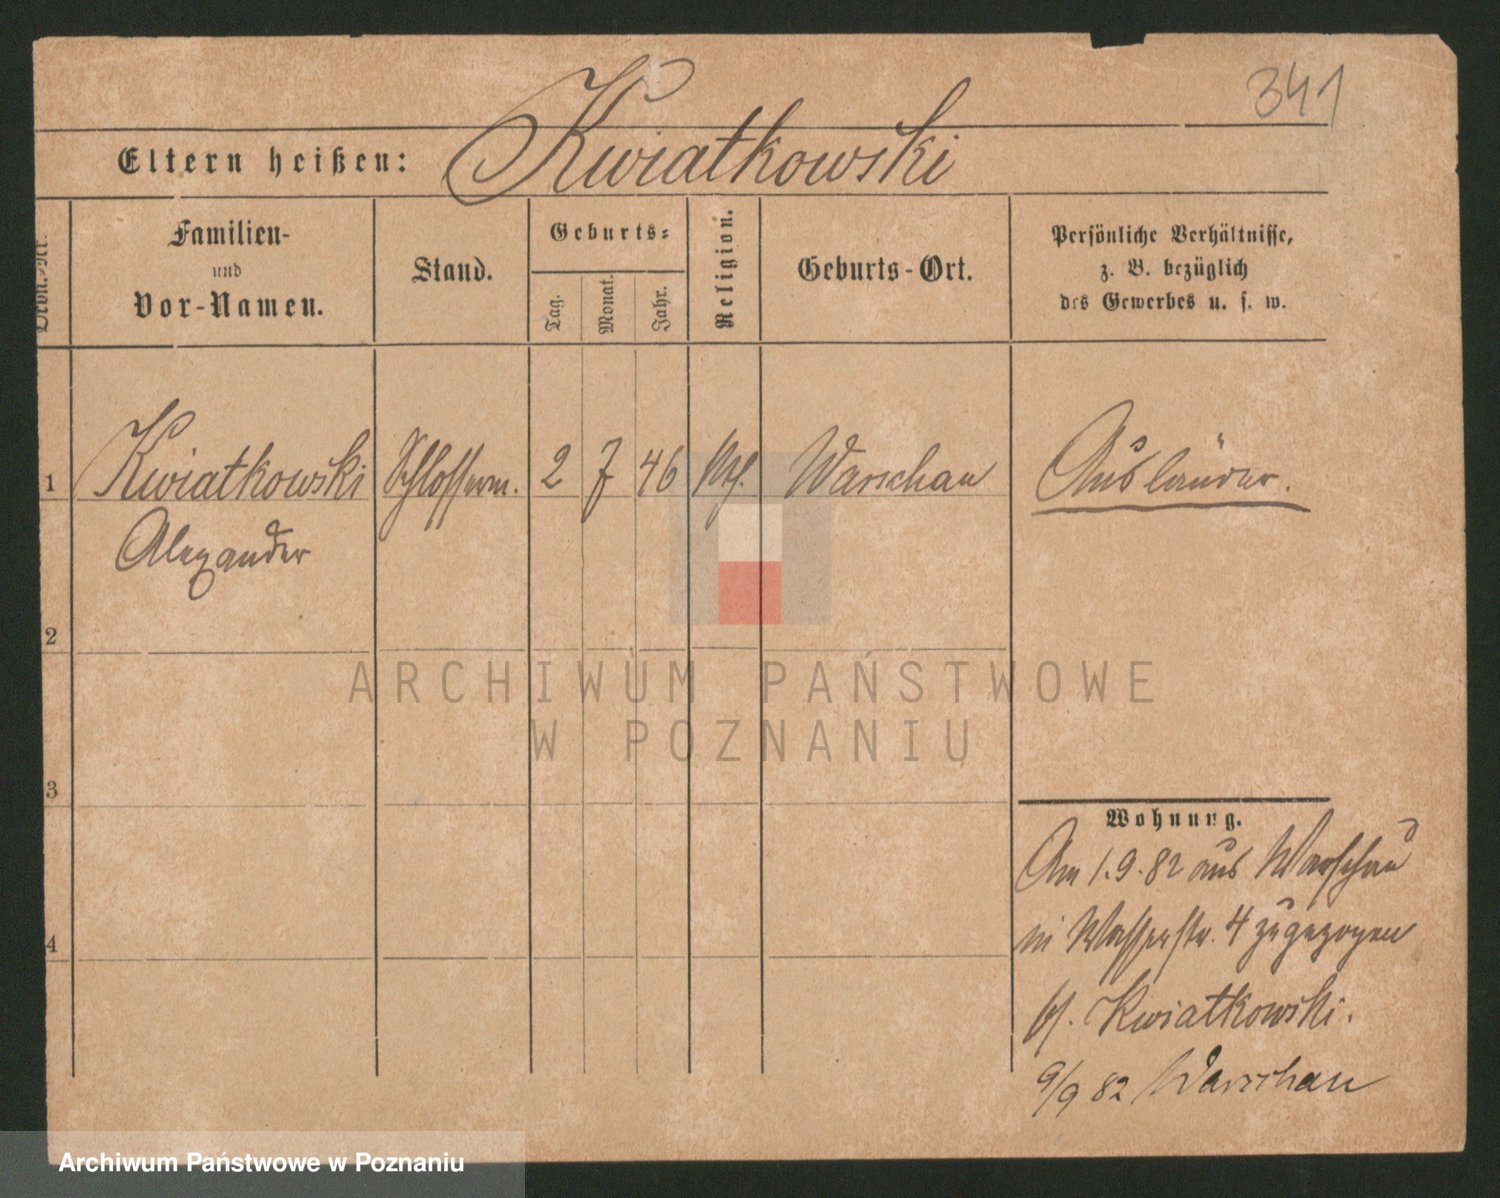 341
Eltern heißen: Kwiatkowski
Ordn.-Nr.
Familien-
und
Vor-Namen.
Stand.
Geburts-
Tag.
Monat.
Jahr.
Religion.
Geburts-Ort.
Persönliche Verhältnisse,
z. B. bezüglich
des Gewerbes u. s. w.
1 Kwiatkowski 2 7 46 Warschau Ausländer.
Alexander
2
ARCHIWUM PAŃSTWOWE
W POZNANIU
3
Wohnung.
Am 1.9.82 aus Warschau
in Wasserstr. 4 zugezogen
Kwiatkowski.
9/9 82 Warschau
4
Archiwum Państwowe w Poznaniu